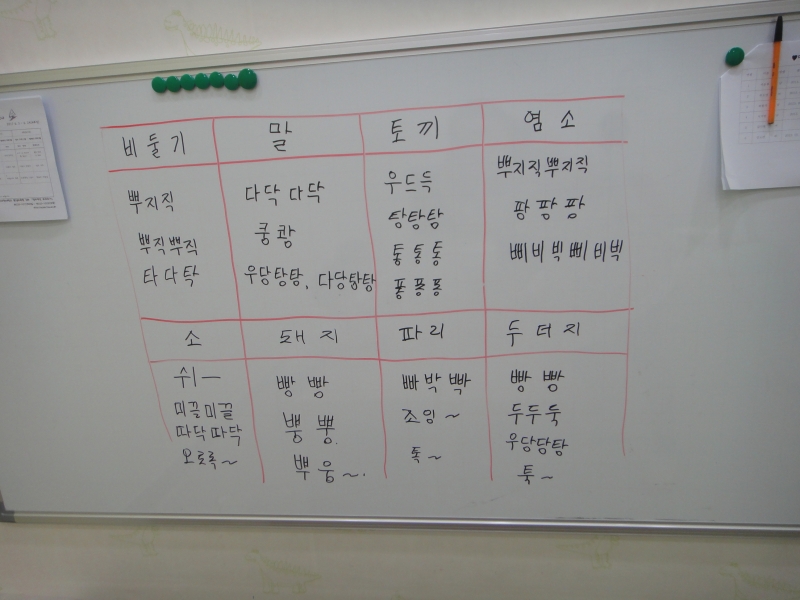 비둘기 말 토끼 염소
뿌지직 다닥 다닥 우드득 뿌지직뿌지직
뿌직뿌직 쿵쾅 탕탕탕 팡 팡 팡
타다탁 우당탕탕, 다당탕탕 통통통 삐비빅삐비빅
퐁퐁퐁
소 돼지 파리 두더지
쉬— 빵 빵 빠박빡 빵 빵
미끌미끌 뿡 뿡. 조잉~ 두두둑
따닥따닥 우당당탕
오로록~ 뿌웅~. 톡~ 툭~